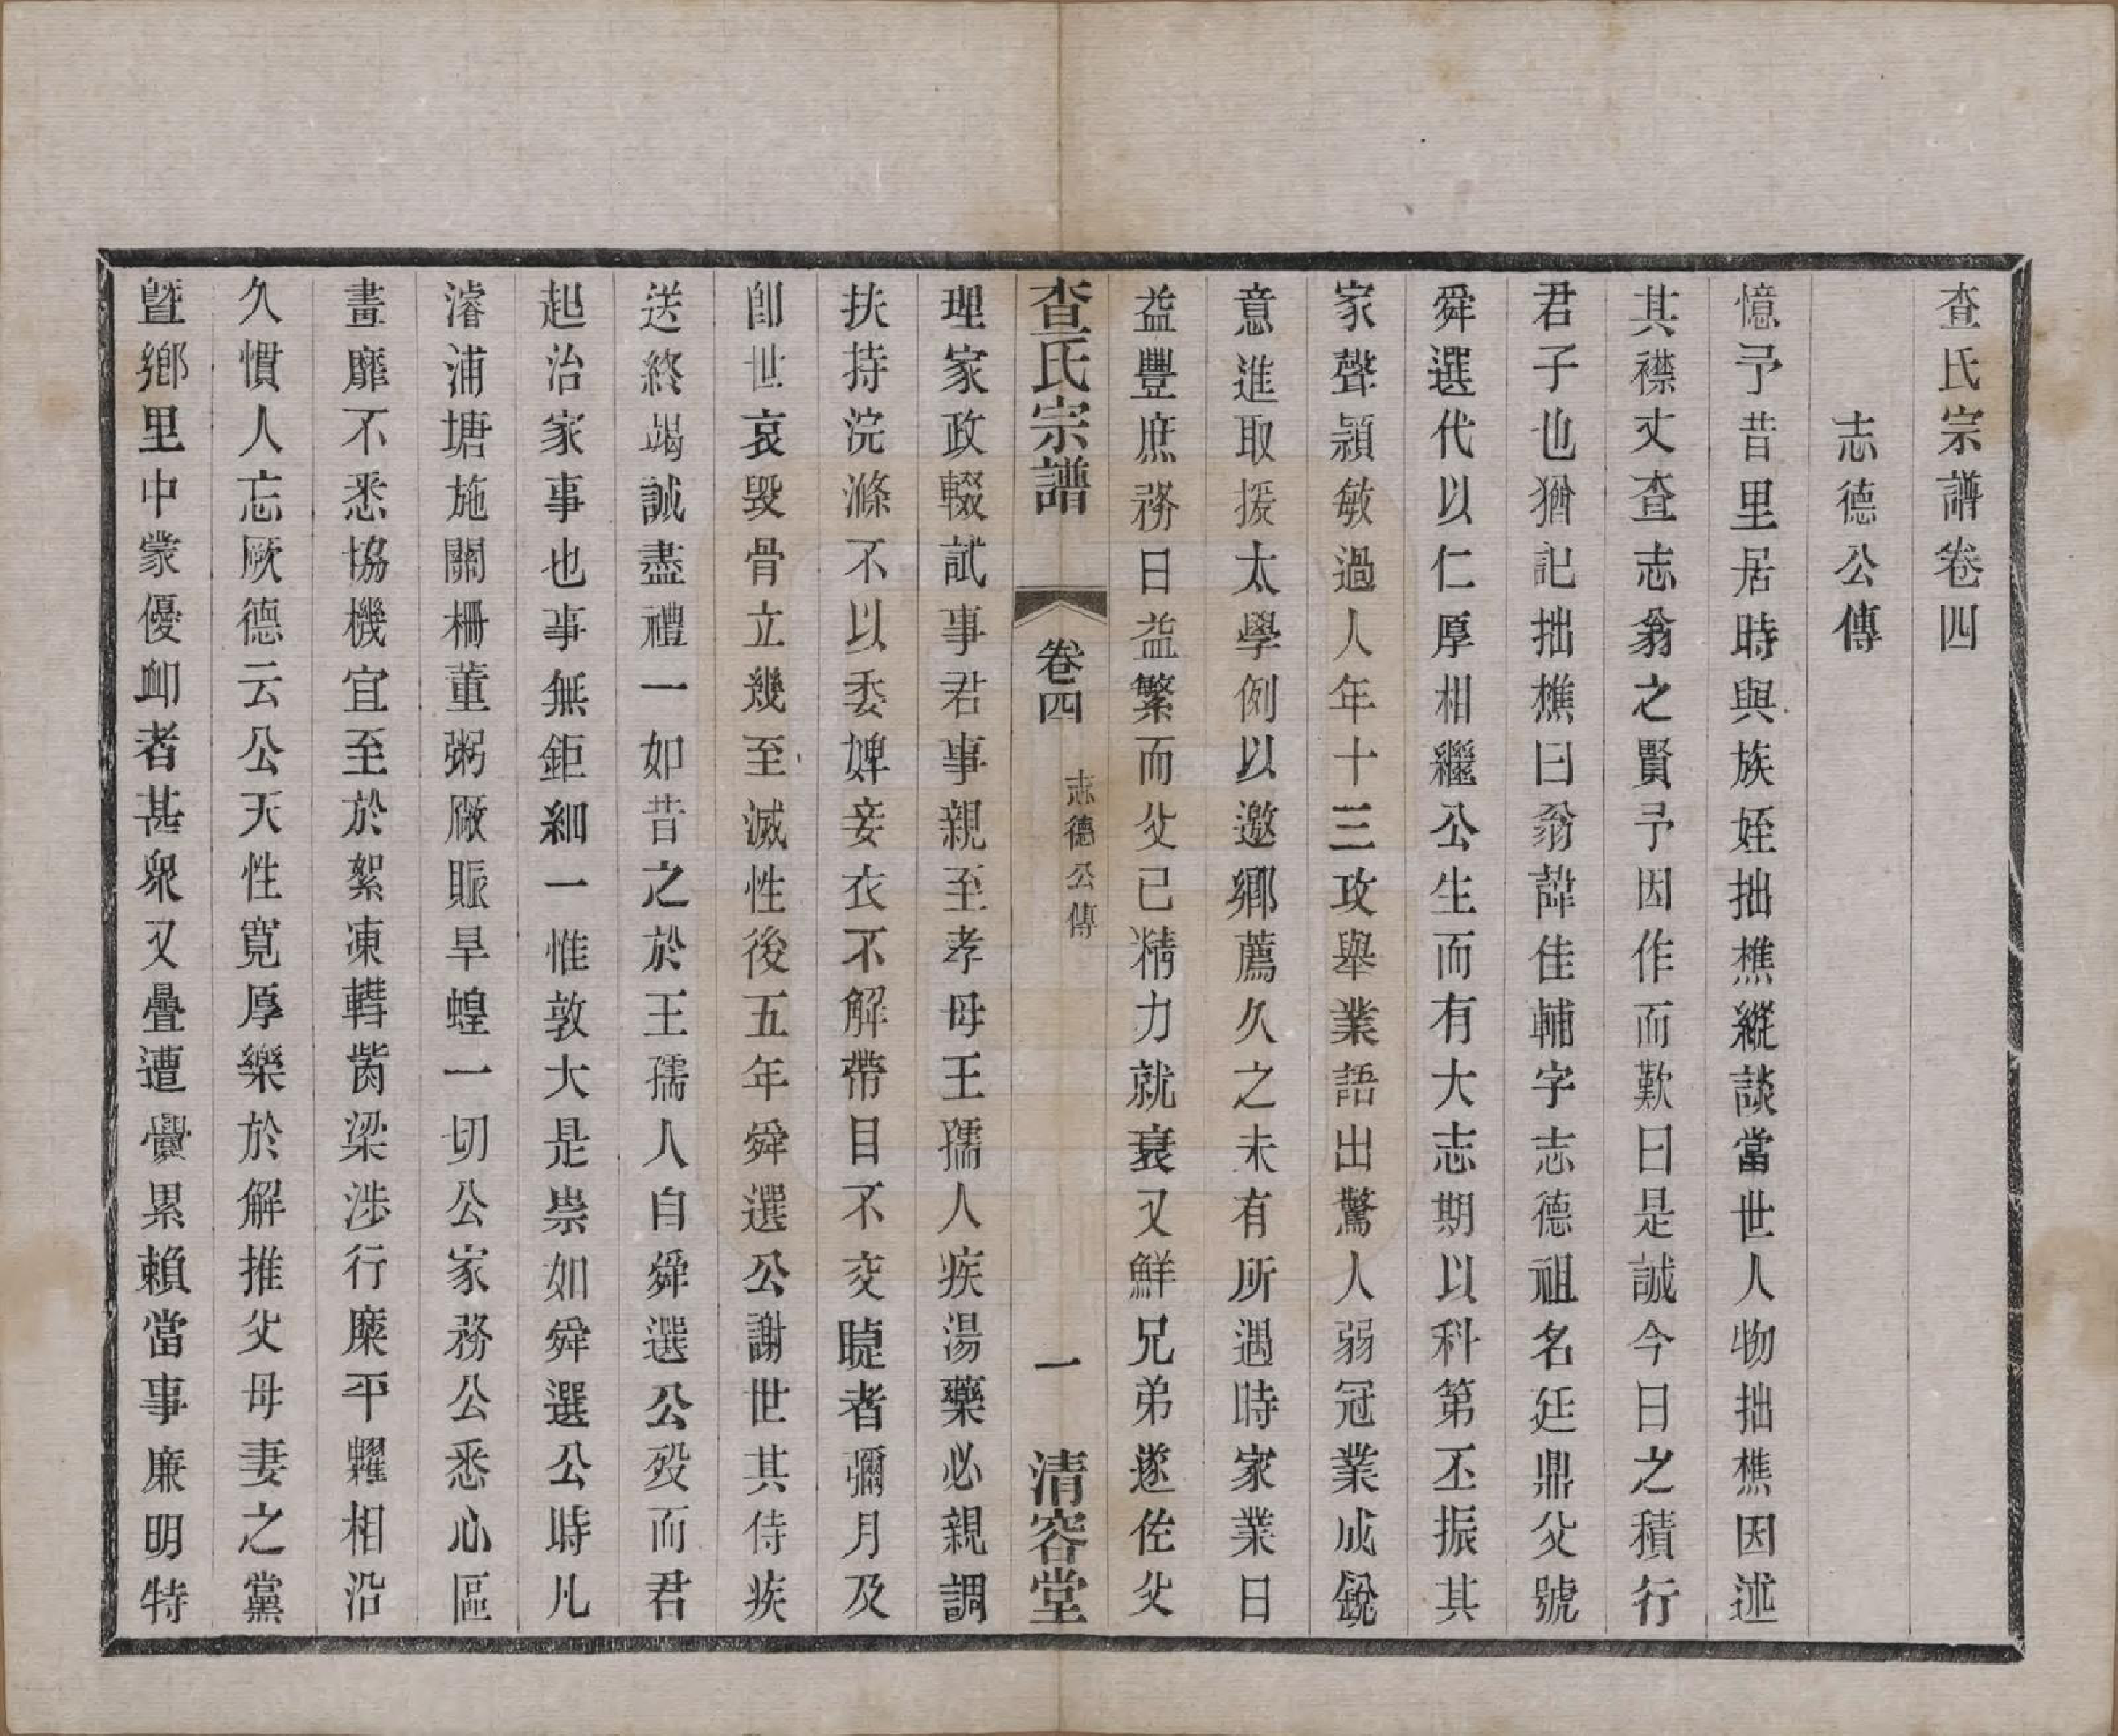 查氏宗譜卷四
志德公傳
憶予昔里居時與族姪拙樵縱談當世人物拙樵因述
其襟丈查志翁之賢予因作而歎曰是誠今日之積行
君子也猶記拙樵曰翁諱佳輔字志德祖名廷鼎父號
舜選代以仁厚相繼公生而有大志期以科第丕振其
家聲穎敏過人年十三攻舉業語出驚人弱冠業成銳
意進取援太學例以邀鄉薦久之未有所遇時家業日
益豐庶務日益繁而父已精力就衰又鮮兄弟遂佐父
查氏宗譜 卷四 志德公傳 一 清容堂
理家政輟試事君事親至孝母王孺人疾湯藥必親調
扶持浣滌不以委婢妾衣不解帶目不交睫者彌月及
卽世哀毀骨立幾至滅性後五年舜選公謝世其侍疾
送終竭誠盡禮一如昔之於王孺人自舜選公歿而君
起治家事也事無鉅細一惟敦大是崇如舜選公時凡
濬浦塘施關柵董粥廠賑旱蝗一切公家務公悉心區
畫靡不悉協機宜至於絮凍轊胔梁涉行糜平糶相沿
久慣人忘厥德云公天性寬厚樂於解推父母妻之黨
曁鄉里中蒙優卹者甚衆又疊遭釁累賴當事廉明特